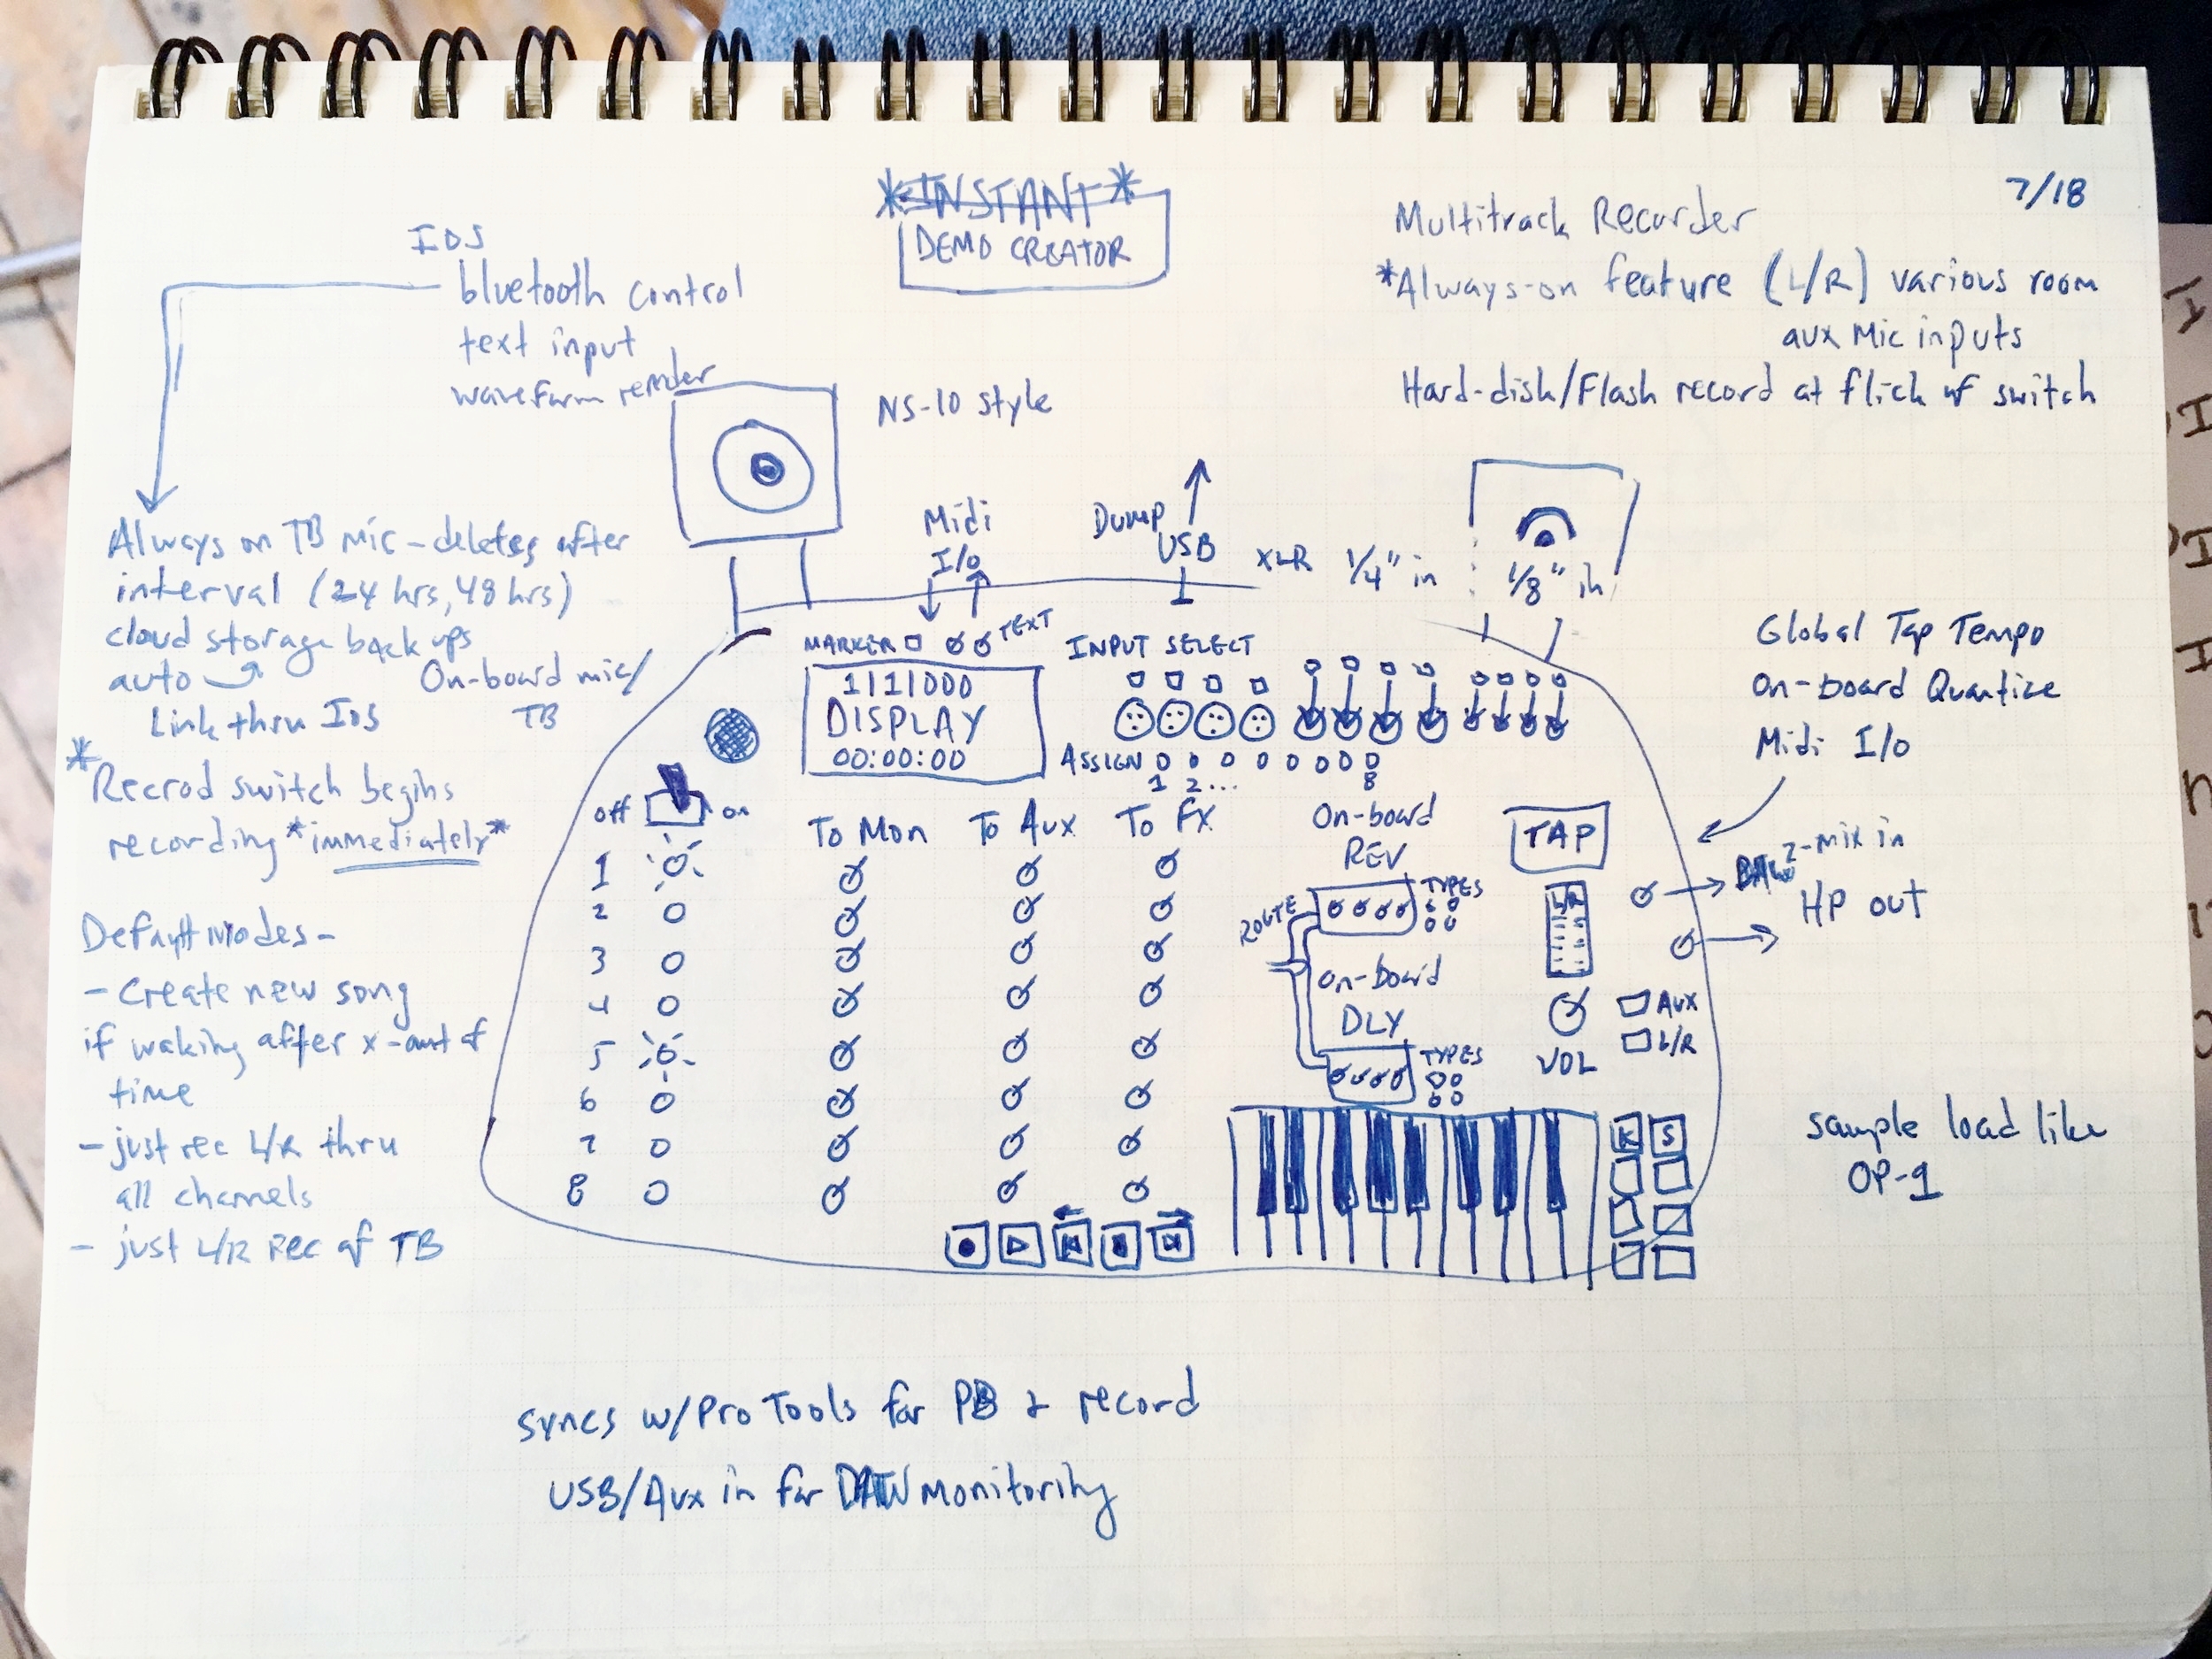 7/18
*INSTANT*
DEMO CREATOR
IOS
bluetooth control
text input
waveform render
Multitrack Recorder
*Always-on feature (L/R) various room
aux Mic inputs
Hard-disk/Flash record at flick of switch
NS-10 style
Midi
I/O
Dump
USB
XLR 1/4" in
1/8" in
Always on TB mic - deletes after
interval (24 hrs, 48 hrs)
cloud storage back ups
auto
Link thru IOS
On-board mic/
TB
*Recrod switch begins
recording *immediately*
Default Modes -
- Create new song
if waking after x-amt of
time
- just rec L/R thru
all channels
- just L/R Rec of TB
MARKER TEXT
1/1/000
DISPLAY
00:00:00
INPUT SELECT
ASSIGN
1 2... 8
off on
To Mon To Aux To FX
1
2
3
4
5
6
7
8
On-board
REV
TYPES
ROUTE
on-board
DLY
TYPES
TAP
L R
VOL
AUX
L/R
K S
Global Tap Tempo
On-board Quantize
Midi I/O
2-mix in
HP out
sample load like
OP-1
syncs w/Pro Tools for PB & record
USB/Aux in for DAW monitoring